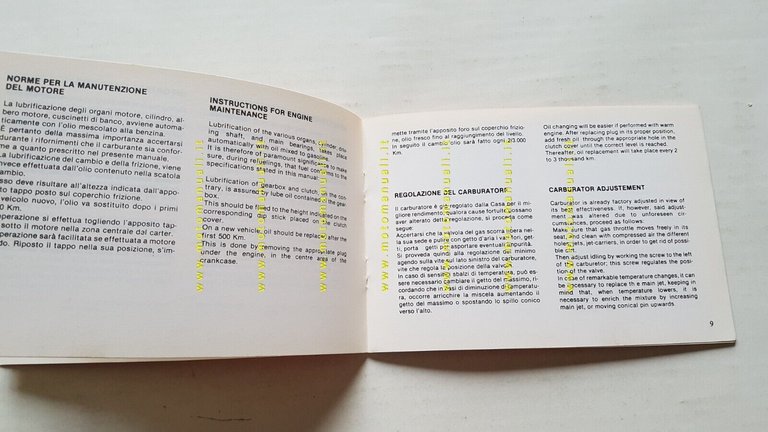 NORME PER LA MANUTENZIONE
DEL MOTORE
La lubrificazione degli organi motore, cilindro, al-
bero motore, cuscinetti di banco, avviene automa-
ticamente con l'olio mescolato alla benzina.
È pertanto della massima importanza accertarsi
durante i rifornimenti che il carburante sia confor-
me a quanto prescritto nel presente manuale.
La lubrificazione del cambio e della frizione, viene
invece effettuata dall'olio contenuto nella scatola
cambio.
sso deve risultare all'altezza indicata dall'appo-
tappo posto sul coperchio frizione.
veicolo nuovo, l'olio va sostituito dopo i primi
0 Km.
operazione si effettua togliendo l'apposito tap-
sotto il motore nella zona centrale dal carter.
operazione sarà facilitata se effettuata a motore
do. Riposto il tappo nella sua posizione, s'im-
INSTRUCTIONS FOR ENGINE
MAINTENANCE
Lubrification of the various organs,
ing shaft, and main bearings, takes place
automatically with oil mixed to gasoline.
It is therefore of paramount significance to make
sure, during refuelings, that fuel conforms to the
specifications stated in this manual.
Lubrification of gearbox and clutch, on the con-
trary, is assured by lube oil contained in the gear-
box.
This should be filled to the height indicated on the
corresponding dip stick placed on the clutch
cover.
On a new vehicle, oil should be replaced after the
first 500 Km.
This is done by removing the appropriate plug
under the engine, in the centre area of the
crankcase.
mette tramite l'apposito foro sul coperchio frizio-
ne, olio fresco fino al raggiungimento del livello.
In seguito il cambio olio sarà fatto ogni 2/3.000
Km.
REGOLAZIONE DEL CARBURATORE
Il carburatore è già regolato dalla Casa per il mi-
gliore rendimento; qualora cause fortuite possano
aver alterato della regolazione, si proceda come
segue:
Accertarsi che la valvola del gas scorra libera nel-
la sua sede e pulire con getto d'aria i vari fori, get-
ti, porta getti per asportare eventuali impurità.
Si provveda quindi alla regolazione del minimo
agendo sulla vite sul lato sinistro del carburatore,
vite che regola la posizione della valvola.
In caso di sensibili sbalzi di temperatura, può es-
sere necessario cambiare il getto del massimo, ri-
cordando che in casi di diminuzione di temperatu-
ra, occorre arricchire la miscela aumentando il
getto del massimo o spostando lo spillo conico
verso l'alto.
Oil changing will be easier if performed with warm
engine. After replacing plug in its proper position,
add fresh oil through the appropriate hole in the
clutch cover until the correct level is reached.
Thereafter, oil replacement will take place every 2
to 3 thousand km.
CARBURATOR ADJUSTEMENT
Carburator is already factory adjusted in view of
its best effectiveness. If, however, said adjust-
ment was altered due to unforeseen cir-
cumstances, proceed as follows:
Make sure that gas throttle moves freely in its
seat, and clean with compressed air the different
holes, jets, jet-carriers, in order to get rid of possi-
ble impurities.
Then adjust idling by working the screw to the left
of the carburator; this screw regulates the posi-
tion of the valve.
In case of remarkable temperature changes, it can
be necessary to replace the main jet, keeping in
mind that, when temperature lowers, it is
necessary to enrich the mixture by increasing
main jet, or moving conical pin upwards.
9
www.motomanuali.it
www.motomanuali.it
www.motomanuali.it
www.motomanuali.it
www.motomanuali.it